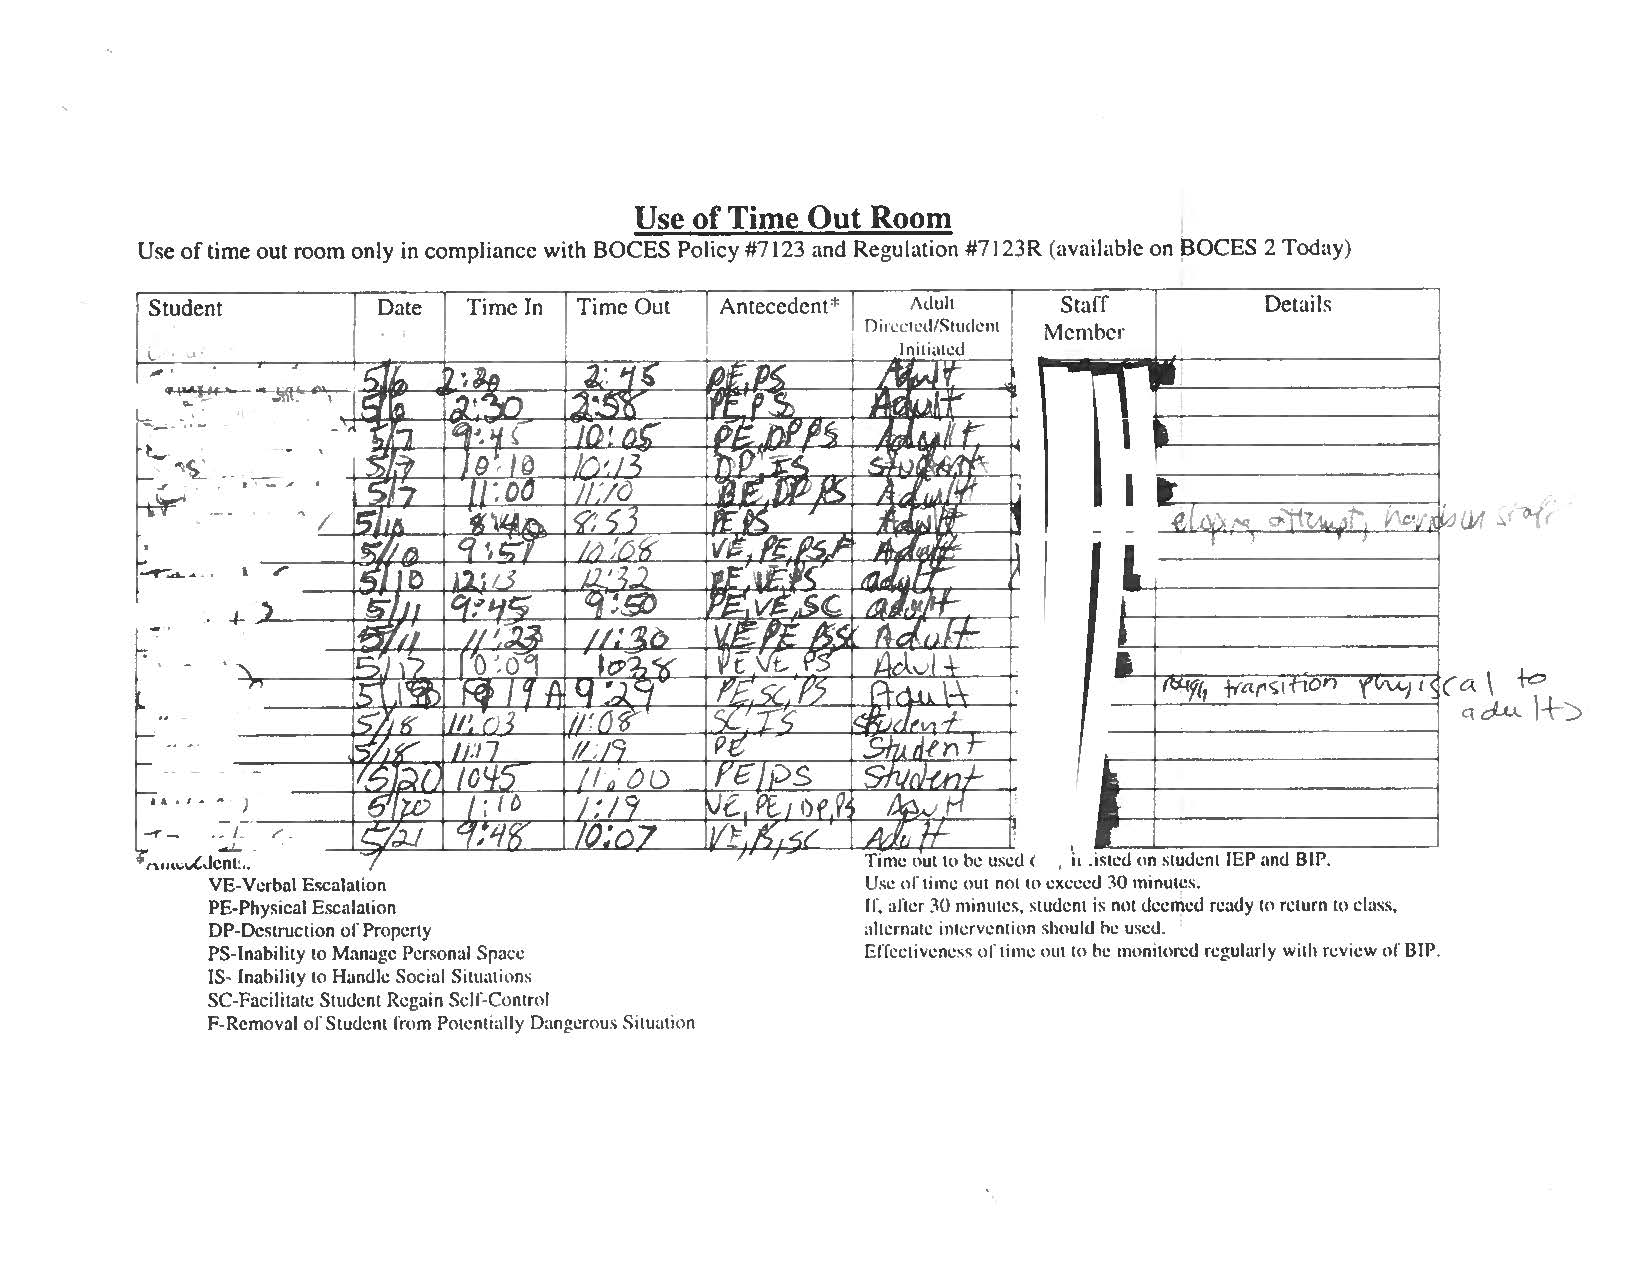 Use of Time Out Room
Use of time out room only in compliance with BOCES Policy #7123 and Regulation #7123R (available on BOCES 2 Today)
Student Date Time In Time Out Antecedent* Adult Directed/Student Initiated Staff Member Details
5/6 2:45 PE, PS Adult
5/6 2:30 2:58 PE, PS Adult
5/7 9:45 10:05 PE, DP PS Adult
5/7 10:10 10:13 DP, IS student
5/7 11:00 11:10 DP, PS Adult
5/10 8:53 PE PS Adult attempt, hands on staff
5/10 9:57 10:08 VE, PE, PS, F Adult
5/10 12:13 12:32 PE, VE, PS adult
5/11 9:45 9:50 PE, VE, SC adult
5/11 11:23 11:30 VE PE Adult
5/12 10:09 1038 PS Adult
19 A 9:29 PE, SC, PS Adult rough transition physical to
adults
5/18 11:03 11:08 SC, IS student
5/18 11:17 11:19 PE Student
5/20 1045 11:00 PE/PS Student
5/20 1:10 1:19 VE, PE, DP, PS Adult
5/21 9:48 10:07 Adult
VE-Verbal Escalation
PE-Physical Escalation
DP-Destruction of Property
PS-Inability to Manage Personal Space
IS- Inability to Handle Social Situations
SC-Facilitate Student Regain Self-Control
F-Removal of Student from Potentially Dangerous Situation
Time out to be used listed on student IEP and BIP.
Use of time out not to exceed 30 minutes.
If, after 30 minutes, student is not deemed ready to return to class,
alternate intervention should be used.
Effectiveness of time out to be monitored regularly with review of BIP.